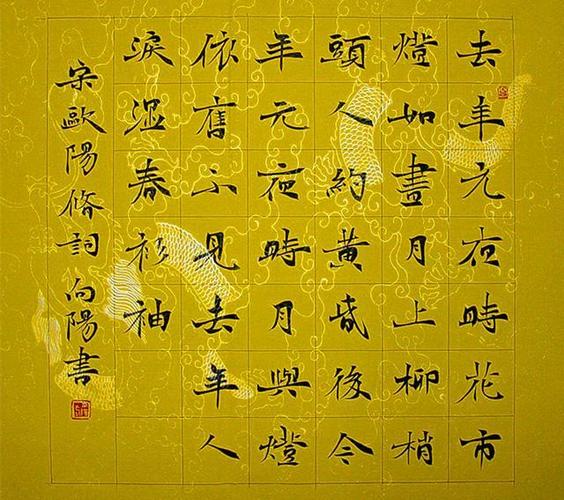 去年元夜時花市
燈如晝月上柳梢
頭人約黃昏後今
年元夜時月與燈
依舊不見去年人
淚湿春衫袖
宋歐陽脩詞向陽書